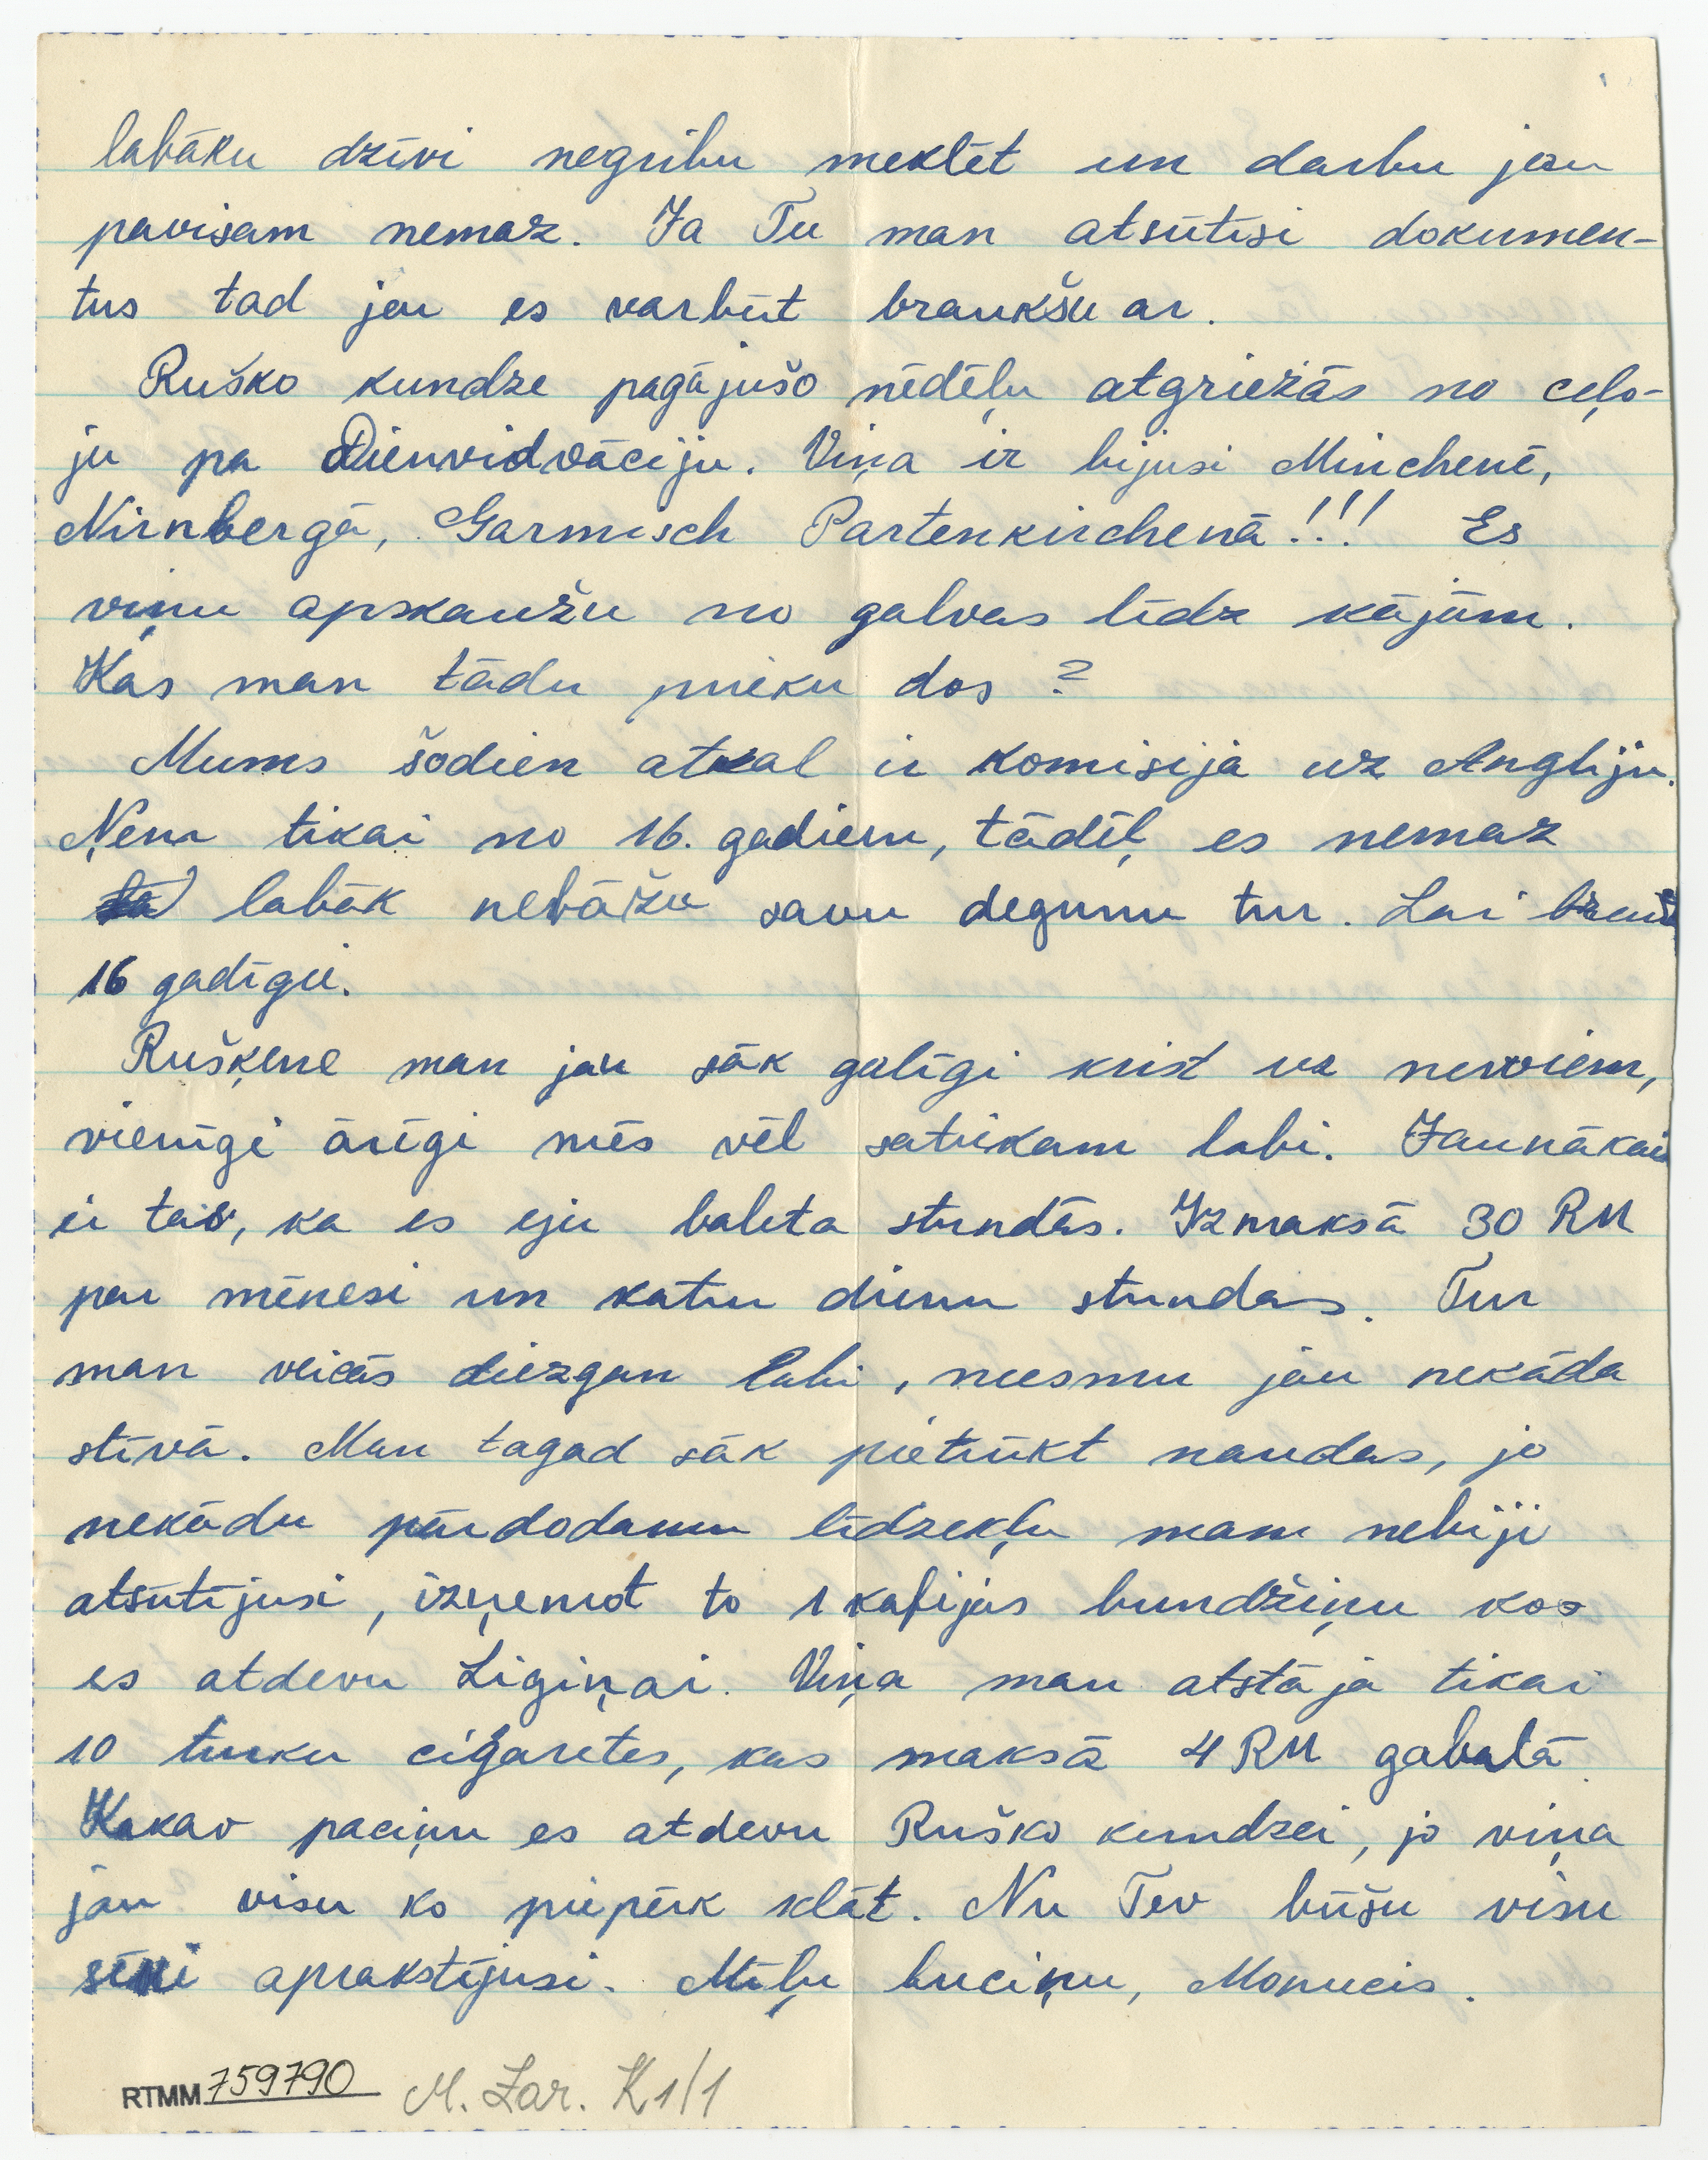 labāku dzīvi negribu meklēt un darbu jau
pavisam nemaz. Ja Tu man atsūtīsi dokumen-
tus tad jau es varbūt braukšu ar.
Ruško kundze pagājušo nēdēļu atgriežās no ceļo-
ju pa Dienvidvāciju. Viņa ir bijusi Minchenē,
Nirnbergā, Garmisch Partenkirchenā!!! Es
viņu apskaužu no galvas līdz kājām.
Kas man tādu prieku dos?
Mums šodien atkal ir komisija uz Angliju.
Ņem tikai no 16. gadiem, tādēļ, es nemaz
labāk nebāžu savu degunu tur. Lai brauc
16 gadīgii.
Rušķene man jau sāk galīgi krist uz nerviem,
vienīgi ārīgi mēs vēl satiekam labi. Jaunākais
ir tas, ka es eju baleta stundās. Izmaksā 30 RM
par mēnesi un katru dienu stundas. Tur
man veicās diezgan labi, neesmu jau nekāda
stīvā. Man tagad sāk pietrūkt naudas, jo
nekādu pārdodamu līdzekļu mam nebiji
atsūtījusi, izņemot to 1 kafijas bundžiņu kos
es atdevu Ligiņai. Viņa man atstāja tikai
10 turku cigaretes, kas maksā 4 RM gabalā.
Kakao paciņu es atdevu Ruško kundzei, jo viņa
jau visu ko piepērk klāt. Nu Tev būšu visu
sīki aprakstījusi. Mīļu buciņu, Monucis.
RTMM 759790 M. Zar. K1/1